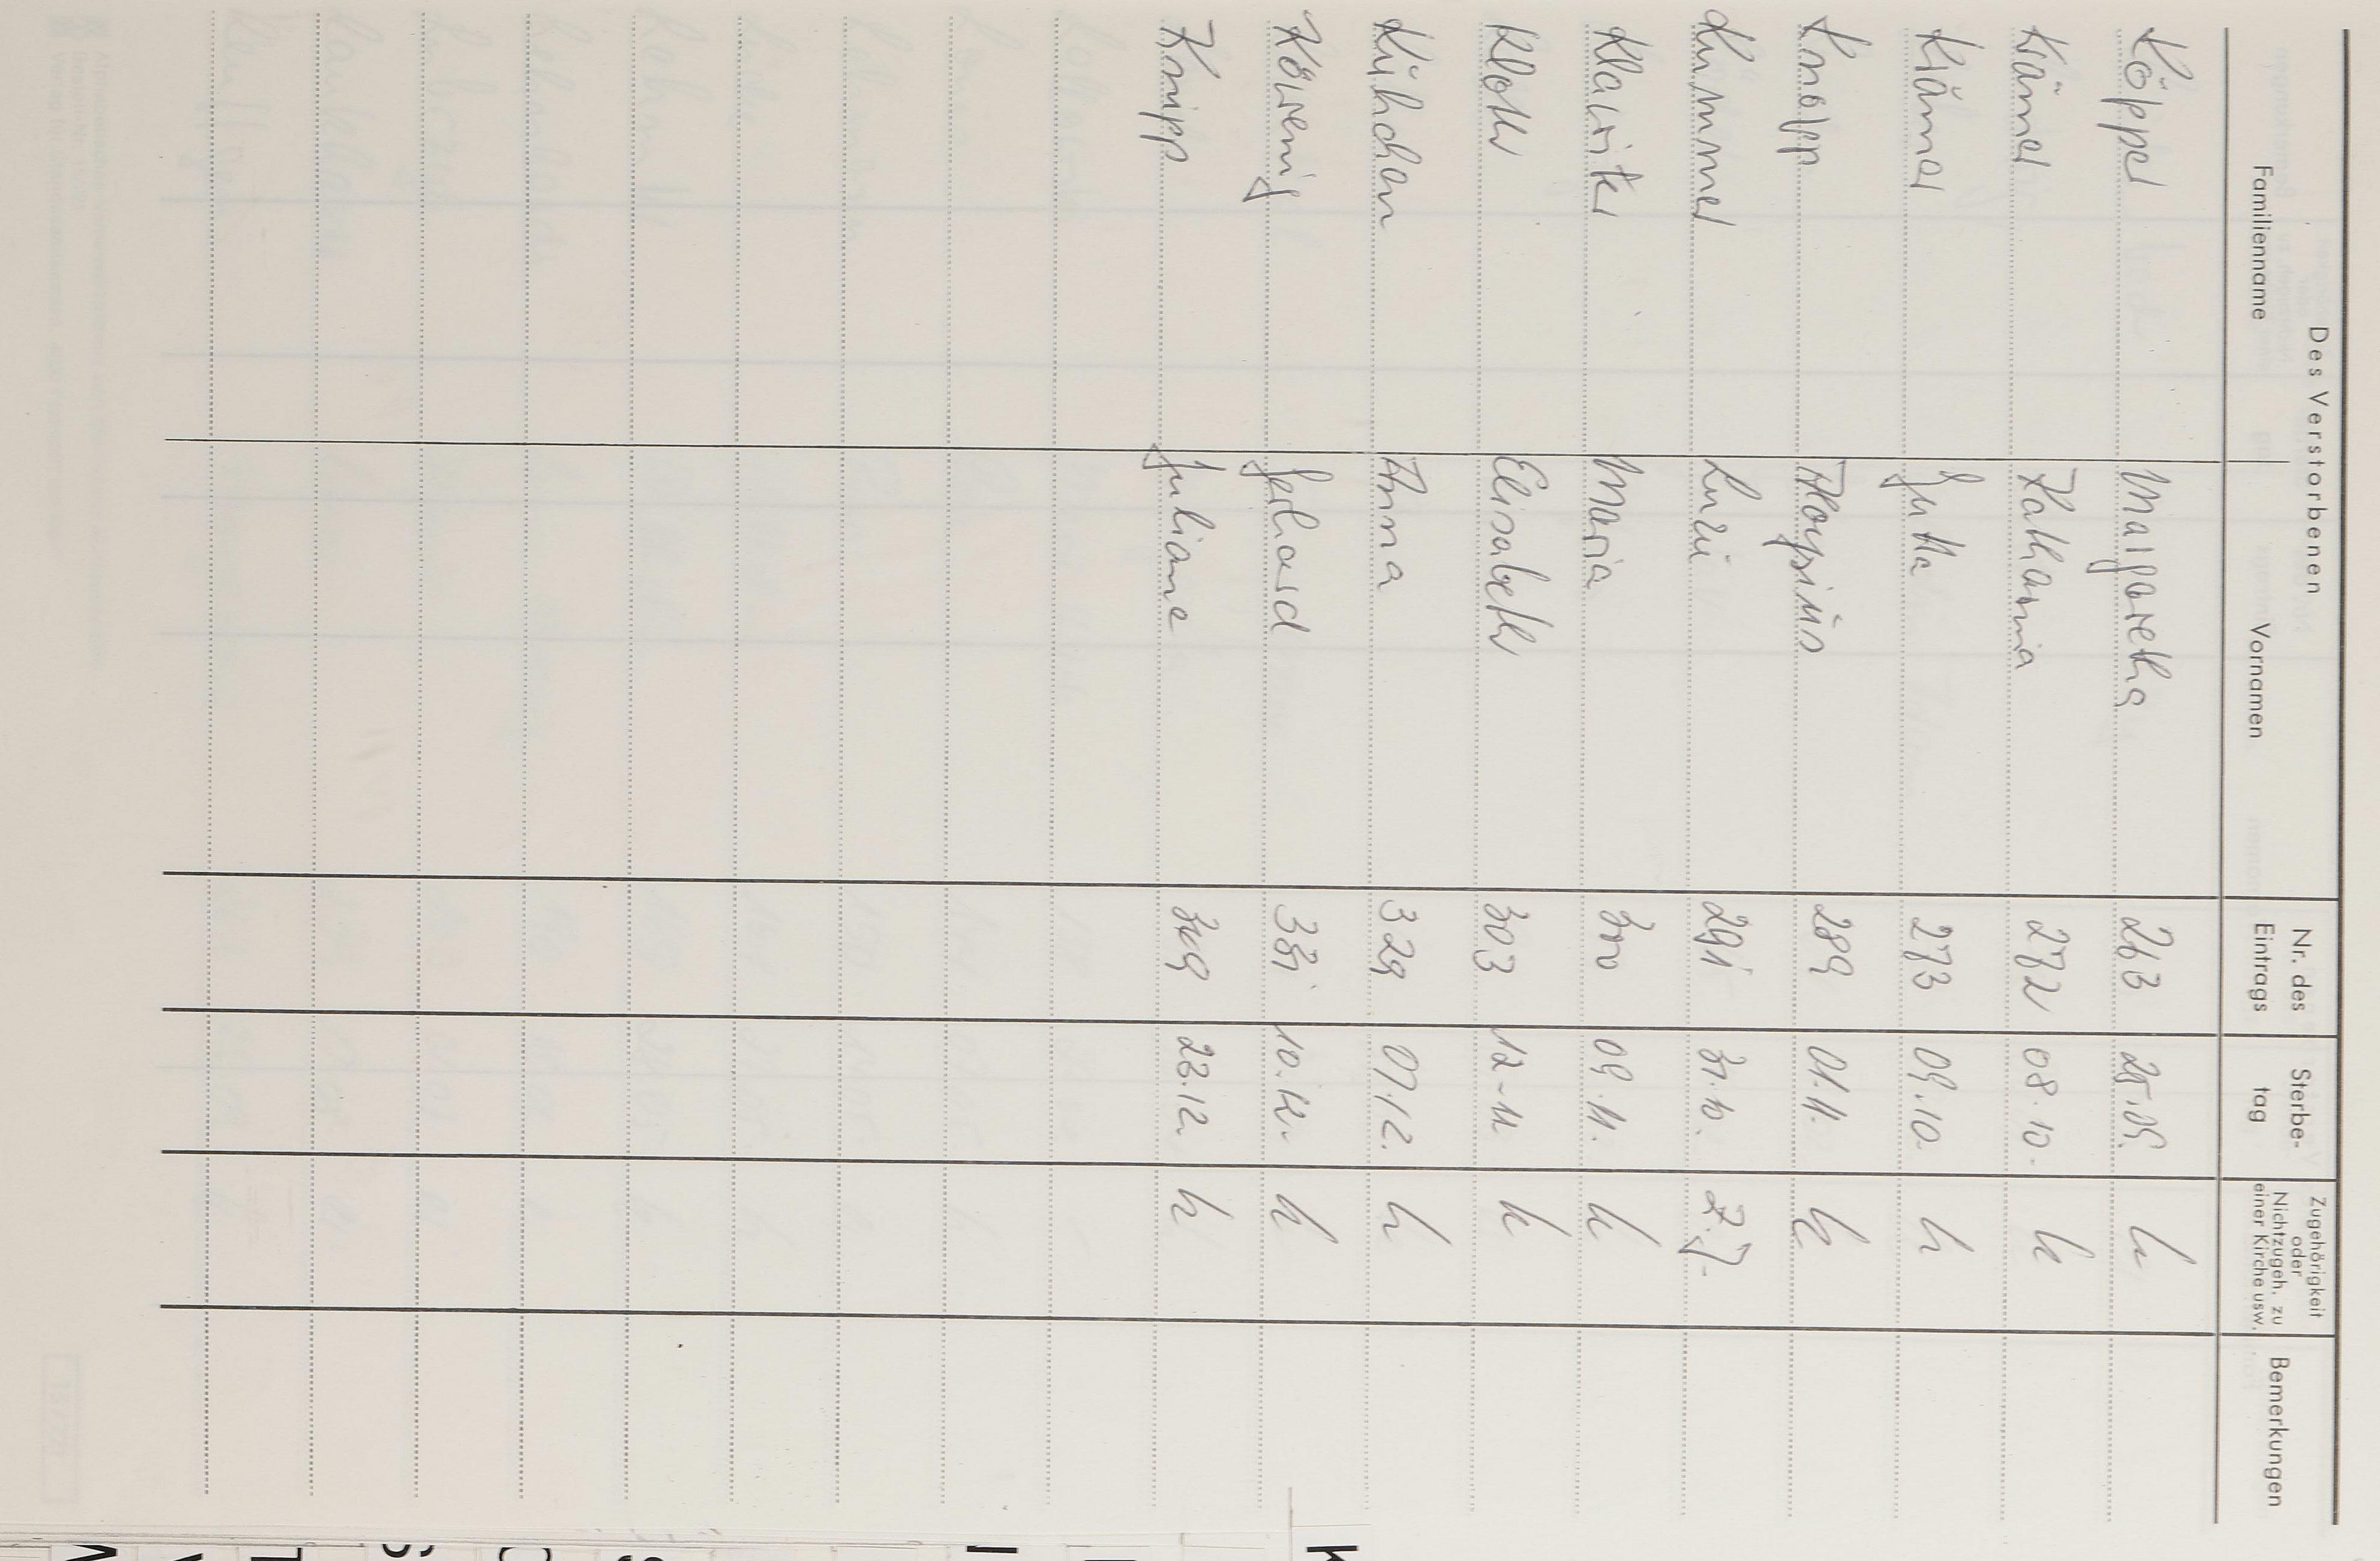 Des Verstorbenen
Familienname Vornamen Nr. des Eintrags Sterbe- tag Zugehörigkeit oder Nichtzugeh. zu einer Kirche usw. Bemerkungen
Köpper Margaretha 263 25.09. k
Krämer Katharina 272 08.10. k
Krämer Jutta 273 09.10. k
Knopp Aloysius 289 01.11. k
Kümmer Luzie 291 31.10. Z.J.
Klavite Maria 300 09.11. k
Kloth Elisabeth 303 12-11 k
Kürhchen Anna 329 07.12. k
Körrenig Gerhard 331 10.12. k
Knipp Juliane 349 23.12. k
K